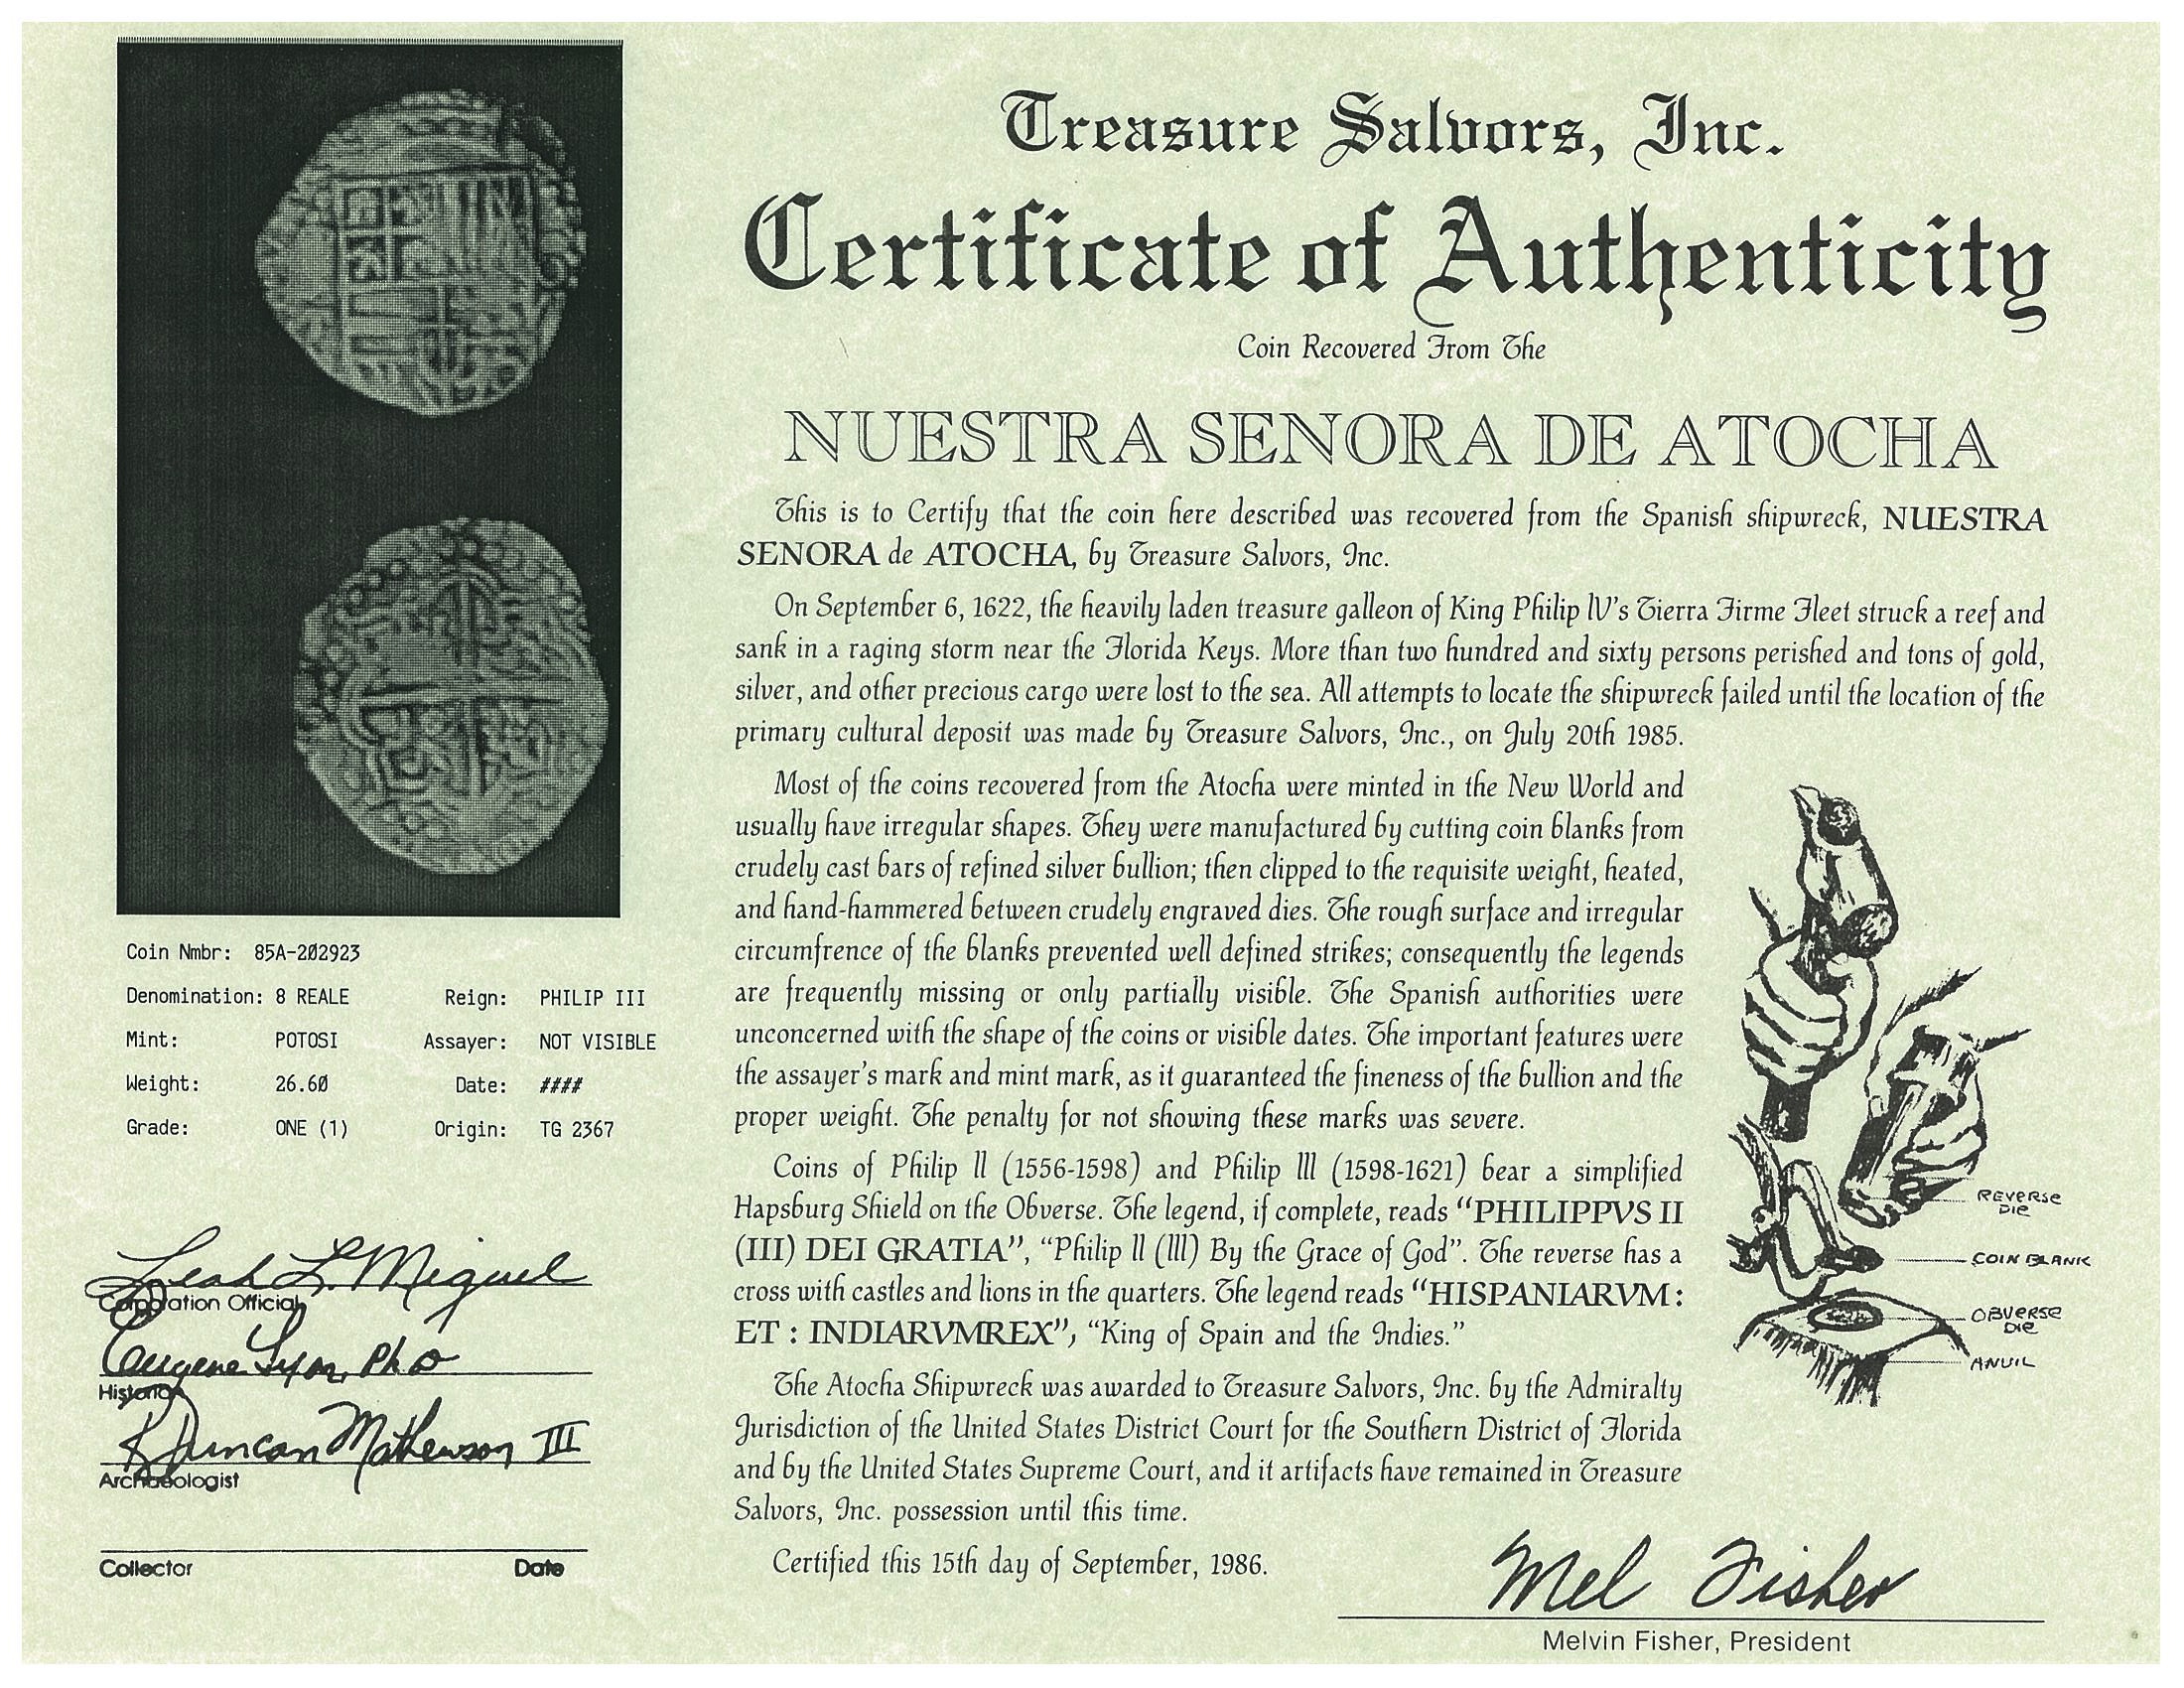 Treasure Salvors, Inc.
Certificate of Authenticity
Coin Recovered From The
NUESTRA SENORA DE ATOCHA
This is to Certify that the coin here described was recovered from the Spanish shipwreck, NUESTRA
SENORA de ATOCHA, by Treasure Salvors, Inc.
On September 6, 1622, the heavily laden treasure galleon of King Philip lV's Tierra Firme Fleet struck a reef and
sank in a raging storm near the Florida Keys. More than two hundred and sixty persons perished and tons of gold,
silver, and other precious cargo were lost to the sea. All attempts to locate the shipwreck failed until the location of the
primary cultural deposit was made by Treasure Salvors, Inc., on July 20th 1985.
Most of the coins recovered from the Atocha were minted in the New World and
usually have irregular shapes. They were manufactured by cutting coin blanks from
crudely cast bars of refined silver bullion; then clipped to the requisite weight, heated,
and hand-hammered between crudely engraved dies. The rough surface and irregular
circumfrence of the blanks prevented well defined strikes; consequently the legends
are frequently missing or only partially visible. The Spanish authorities were
unconcerned with the shape of the coins or visible dates. The important features were
the assayer's mark and mint mark, as it guaranteed the fineness of the bullion and the
proper weight. The penalty for not showing these marks was severe.
Coins of Philip ll (1556-1598) and Philip lll (1598-1621) bear a simplified
Hapsburg Shield on the Obverse. The legend, if complete, reads "PHILIPPVS II
(III) DEI GRATIA", "Philip ll (lll) By the Grace of God". The reverse has a
cross with castles and lions in the quarters. The legend reads "HISPANIARVM:
ET : INDIARVMREX", "King of Spain and the Indies."
The Atocha Shipwreck was awarded to Treasure Salvors, Inc. by the Admiralty
Jurisdiction of the United States District Court for the Southern District of Florida
and by the United States Supreme Court, and it artifacts have remained in Treasure
Salvors, Inc. possession until this time.
Certified this 15th day of September, 1986.
Mel Fisher
Melvin Fisher, President
REVERSE
DIE
COIN BLANK
OBVERSE
DIE
ANVIL
Coin Nmbr: 85A-202923
Denomination: 8 REALE Reign: PHILIP III
Mint: POTOSI Assayer: NOT VISIBLE
Weight: 26.60 Date: ####
Grade: ONE (1) Origin: TG 2367
Leah L. Miguel
Corporation Official
Eugene Lyon, PhD
Historian
R Duncan Mathewson III
Archaeologist
Collector Date